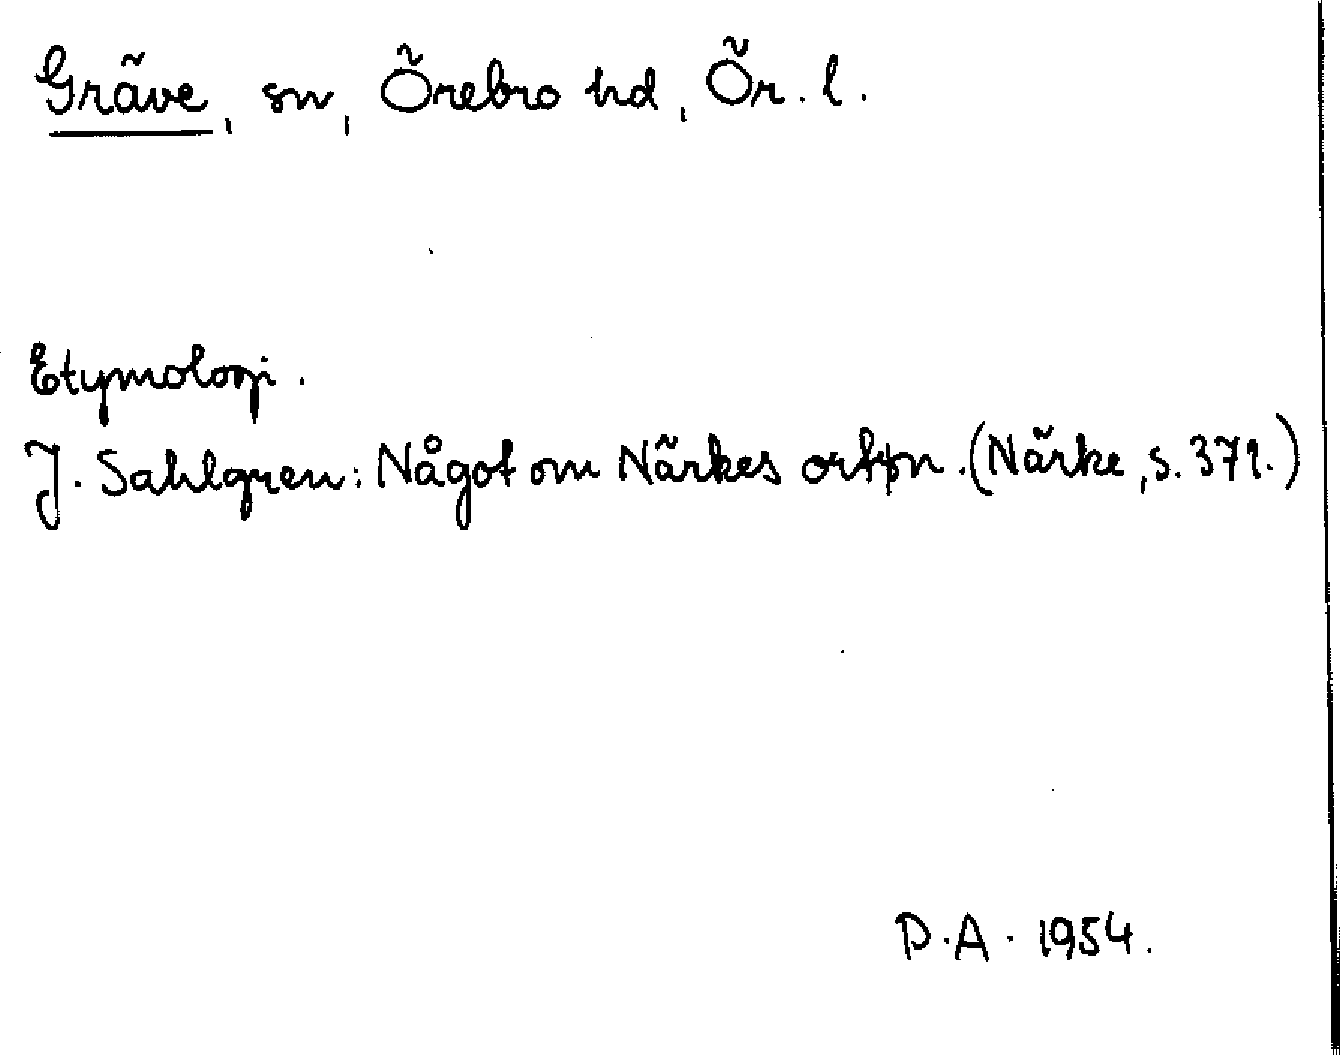 Gräve, sn, Örebro hd, Ör. l.
Etymologi.
J. Sahlgren: Något om Närkes ortn. (Närke, s. 371.)
D.A. 1954.